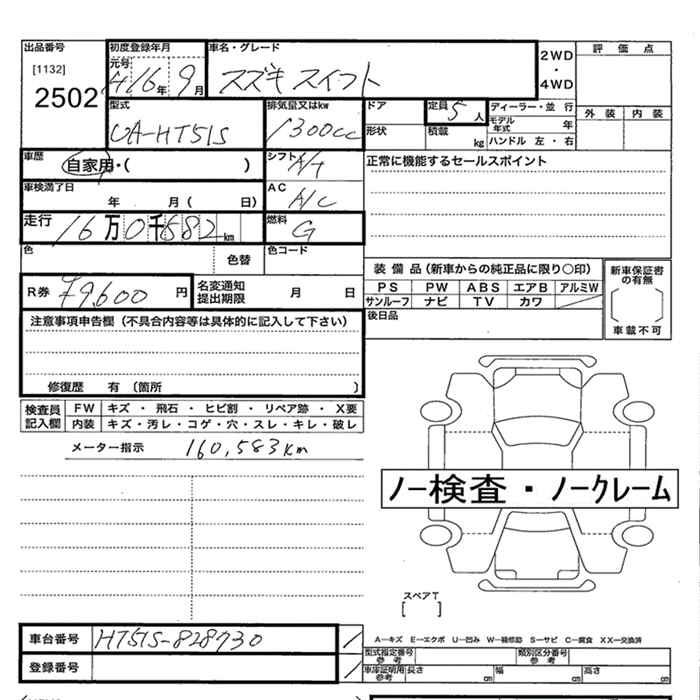 出品番号 初度登録年月 車名・グレード 2WD ・ 4WD 評価点
[1132] 元号 H16年9月 スズキ スイフト
2502
型式 排気量又はkw ドア 定員 5人 ディーラー・並行 外装 内装
UA-HT51S 1300cc 形状 積載 kg モデル年式 年
ハンドル 左・右
車歴 自家用・( ) シフト A/T 正常に機能するセールスポイント
車検満了日 年 月( 日) AC A/C
走行 16万0千582km 燃料 G
色 色替 色コード
装備品(新車からの純正品に限り○印) 新車保証書の有無
R券 ¥9,600円 名変通知提出期限 月 日 PS PW ABS エアB アルミW
サンルーフ ナビ TV カワ [ ]
注意事項申告欄(不具合内容等は具体的に記入して下さい) 後日品 車載不可
修復歴 有 〔箇所 〕
検査員記入欄 FW キズ・飛石・ヒビ割・リペア跡・X要
内装 キズ・汚レ・コゲ・穴・スレ・キレ・破レ
メーター指示 160,583km
ノー検査・ノークレーム
スペアT
[ ]
車台番号 HT51S-828730
A―キズ E―エクボ U―凹み W―補修跡 S―サビ C―腐食 XX―交換済
登録番号 型式指定番号 参考 類別区分番号 参考
車庫証明用 参考 長さ cm 幅 cm 高さ cm